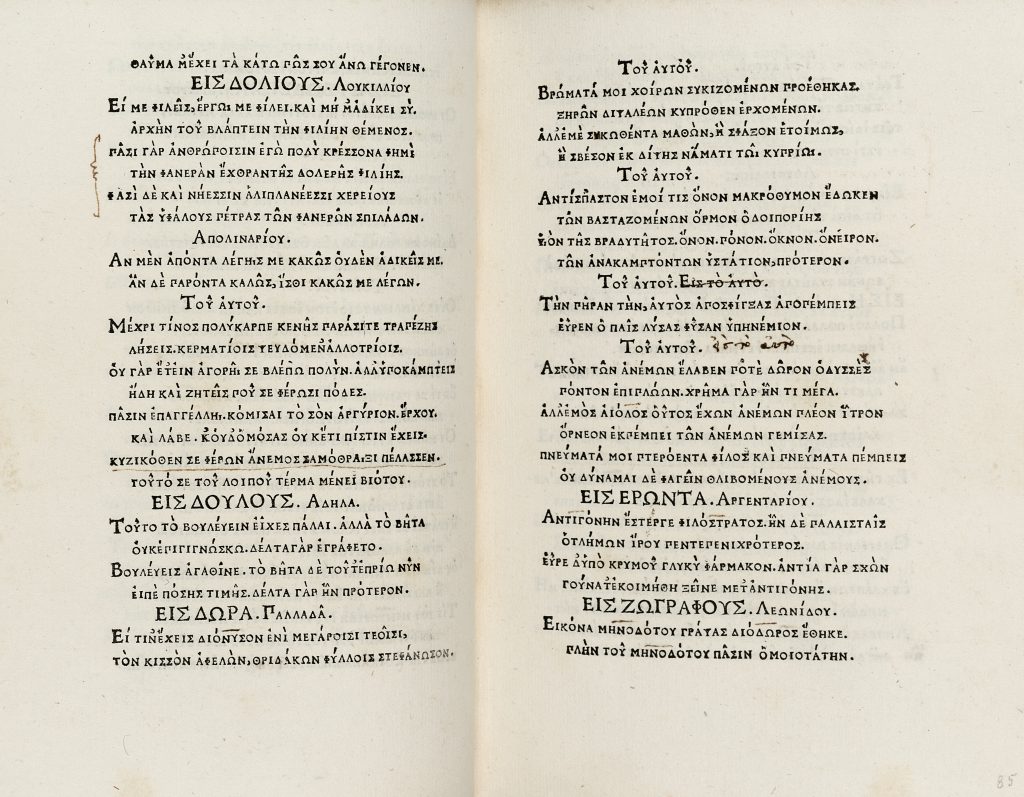 ΘΑῦΜΑ ΜΈΧΕΙ ΤᾺ ΚΆΤΩ ΠῶΣ ΣΟΥ ἌΝΩ ΓΈΓΟΝΕΝ.
ΕΙΣ ΔΟΛΙΟΥΣ. ΛΟΥΚΙΛΛΊΟΥ
ΕἼ ΜΕ ΦΙΛΕῖΣ, ἜΡΓΩΙ ΜΕ ΦΊΛΕΙ. ΚΑῚ ΜΉ Μ' ἈΔΊΚΕΙ ΣῪ.
ἈΡΧῊΝ ΤΟῦ ΒΛΆΠΤΕΙΝ ΤῊΝ ΦΙΛΊΗΝ ΘΈΜΕΝΟΣ.
ΠᾶΣΙ ΓᾺΡ ἈΝΘΡΏΠΟΙΣΙΝ ἘΓῺ ΠΟΛῪ ΚΡΈΣΣΟΝΑ ΦΗΜῚ
ΤῊΝ ΦΑΝΕΡᾺΝ ἜΧΘΡΑΝ ΤῆΣ ΔΟΛΕΡῆΣ ΦΙΛΊΗΣ.
ΦΑΣῚ ΔῈ ΚΑῚ ΝΉΕΣΣΙΝ ἈΛΙΠΛΑΝΈΕΣΣΙ ΧΕΡΕΊΟΥΣ
ΤᾺΣ ὙΦΆΛΟΥΣ ΠΈΤΡΑΣ ΤῶΝ ΦΑΝΕΡῶΝ ΣΠΙΛΆΔΩΝ.
ἈΠΟΛΙΝΑΡΊΟΥ.
ἊΝ ΜῈΝ ἈΠΌΝΤΑ ΛΈΓΗΙΣ ΜΕ ΚΑΚῶΣ ΟὐΔῈΝ ἈΔΙΚΕῖΣ ΜΕ.
ἊΝ ΔῈ ΠΑΡΌΝΤΑ ΚΑΛῶΣ, ἼΣΘΙ ΚΑΚῶΣ ΜΕ ΛΈΓΩΝ.
ΤΟῦ ἈΥΤΟῦ.
ΜΈΧΡΙ ΤΊΝΟΣ ΠΟΛΎΚΑΡΠΕ ΚΕΝῆΣ ΠΑΡΆΣΙΤΕ ΤΡΑΠΈΖΗΣ
ΛΉΣΕΙΣ. ΚΕΡΜΑΤΊΟΙΣ ΨΕΥΔΌΜΕΝ' ἈΛΛΟΤΡΊΟΙΣ.
ΟΥ ΓᾺΡ ἜΤ' ΕΙΝ ἈΓΟΡῆΙ ΣΕ ΒΛΈΠΩ ΠΟΛΎΝ. ἈΛΛ' ὙΠΟΚΆΜΠΤΕΙΣ
ἬΔΗ ΚΑῚ ΖΗΤΕῖΣ ΠΟΥ ΣΕ ΦΈΡΩΣΙ ΠΌΔΕΣ.
ΠᾶΣΙΝ ἘΠΑΓΓΈΛΛΗΙ. ΚΌΜΙΣΑΙ ΤΟ ΣῸΝ ἈΡΓΎΡΙΟΝ. ἜΡΧΟΥ.
ΚΑῚ ΛΆΒΕ. Κ' ΟΥΔ' ὈΜΌΣΑΣ ΟΥ ΚΈΤΙ ΠΊΣΤΙΝ ἜΧΕΙΣ.
ΚΥΖΙΚΌΘΕΝ ΣΕ ΦΈΡΩΝ ἌΝΕΜΟΣ ΣΑΜΌΘΡΑΙΞΙ ΠΈΛΑΣΣΕΝ.
ΤΟῦΤΌ ΣΕ ΤΟῦ ΛΟΙΠΟῦ ΤΈΡΜΑ ΜΈΝΕΙ ΒΙΌΤΟΥ.
ΕΙΣ ΔΟΥΛΟΥΣ. ἈΔΗΛΑ.
ΤΟῦΤΟ ΤῸ ΒΟΥΛΕΎΕΙΝ ΕἾΧΕΣ ΠΆΛΑΙ. ἈΛΛᾺ ΤῸ ΒῆΤΑ
ΟΥΚ ἘΠΙΓΙΓΝΏΣΚΩ. ΔΈΛΤΑ ΓᾺΡ ἘΓΡΆΦΕΤΟ.
ΒΟΥΛΕΎΕΙΣ ἈΓΑΘῖΝΕ. ΤῸ ΒῆΤΑ ΔΈ ΤΟῦΤ' ἘΠΡΊΩ ΝῦΝ
ΕΙΠῈ ΠΌΣΗΣ ΤΙΜῆΣ. ΔΈΛΤΑ ΓᾺΡ ἮΝ ΠΡΌΤΕΡΟΝ.
ΕΙΣ ΔΩΡΑ. ΠΑΛΛΑΔᾶ.
ΕἼ ΤΙΝ' ἜΧΕΙΣ ΔΙΌΝΥΣΟΝ ἘΝῚ ΜΕΓΆΡΟΙΣΙ ΤΕΟῖΣΙ,
ΤῸΝ ΚΙΣΣῸΝ ἈΦΕΛῺΝ, ΘΡΙΔΆΚΩΝ ΦΎΛΛΟΙΣ ΣΤΕΦΆΝΩΣΟΝ.
ΤΟῦ ἈΥΤΟῦ.
ΒΡΏΜΑΤΆ ΜΟΙ ΧΟΊΡΩΝ ΣΥΚΙΖΟΜΈΝΩΝ ΠΡΟΈΘΗΚΑΣ.
ΞΗΡῶΝ ΔΙΨΑΛΈΩΝ ΚΥΠΡΌΘΕΝ ἘΡΧΟΜΈΝΩΝ.
ἈΛΛ' ἘΜῈ ΣΥΚΩΘΈΝΤΑ ΜΑΘῺΝ, Ἢ ΣΦΆΞΟΝ ἘΤΟΊΜΩΣ,
Ἢ ΣΒΈΣΟΝ ἘΚ ΔΊΨΗΣ ΝΆΜΑΤΙ ΤΩΙ ΚΥΠΡΊΩΙ.
ΤΟῦ ἈΥΤΟῦ.
ἈΝΤΊΣΠΑΣΤΟΝ ἘΜΟΊ ΤΙΣ ὌΝΟΝ ΜΑΚΡΌΘΥΜΟΝ ἜΔΩΚΕΝ
ΤῶΝ ΒΑΣΤΑΖΟΜΈΝΩΝ ὍΡΜΟΝ ὉΔΟΙΠΟΡΊΗΣ
ΥἹῸΝ ΤῆΣ ΒΡΑΔΥΤῆΤΟΣ. ὌΝΟΝ. ΠΌΝΟΝ. ὌΚΝΟΝ. ὌΝΕΙΡΟΝ.
ΤῶΝ ἈΝΑΚΑΜΠΤΌΝΤΩΝ ὝΣΤΑΤΙΟΝ, ΠΡΌΤΕΡΟΝ.
ΤΟῦ ἈΥΤΟῦ. ΕΙΣ ΤῸ ἈΥΤΌ.
ΤῊΝ ΠΉΡΑΝ ΤῊΝ, ἈΥΤῸΣ ἈΠΟΣΦΊΓΞΑΣ ἈΠΟΠΈΜΠΕΙΣ
ΕὟΡΕΝ Ὁ ΠΑῖΣ ΛΎΣΑΣ ΦῦΣΑΝ ὙΠΗΝΈΜΙΟΝ.
ΤΟῦ ἈΥΤΟῦ. εἰς τὸ αὐτὸ
ἈΣΚῸΝ ΤῶΝ ἈΝΈΜΩΝ ἜΛΑΒΕΝ ΠΟΤῈ ΔῶΡΟΝ ὈΔΥΣΣΕῪΣ
ΠΌΝΤΟΝ ἘΠΙΠΛΏΩΝ. ΧΡῆΜΑ ΓᾺΡ ἮΝ ΤΙ ΜΈΓΑ.
ἈΛΛ' ἘΜῸΣ ἈΊΟΛΟΣ ΟὟΤΟΣ ἜΧΩΝ ἈΝΈΜΩΝ ΠΛΈΟΝ ἾΤΡΟΝ
ὌΡΝΕΟΝ ἘΚΠΈΜΠΕΙ ΤῶΝ ἈΝΈΜΩΝ ΓΕΜΊΣΑΣ.
ΠΝΕΎΜΑΤΆ ΜΟΙ ΠΤΕΡΌΕΝΤΑ ΦΊΛΟΣ ΚΑῚ ΠΝΕΎΜΑΤΑ ΠΈΜΠΕΙΣ
ΟΥ ΔΎΝΑΜΑΙ ΔῈ ΦΑΓΕῖΝ ΘΛΙΒΟΜΈΝΟΥΣ ἈΝΈΜΟΥΣ.
ΕΙΣ ΕΡΩΝΤΑ. ἈΡΓΕΝΤΑΡΊΟΥ.
ἈΝΤΙΓΌΝΗΝ ἜΣΤΕΡΓΕ ΦΙΛΌΣΤΡΑΤΟΣ. ἮΝ ΔῈ ΠΑΛΑΙΣΤΑῖΣ
Ὁ ΤΛΉΜΩΝ ἼΡΟΥ ΠΈΝΤΕ ΠΕΝΙΧΡΌΤΕΡΟΣ.
ΕὟΡΕ Δ' ὙΠῸ ΚΡΥΜΟῦ ΓΛΥΚῪ ΦΆΡΜΑΚΟΝ. ἈΝΤΊΑ ΓᾺΡ ΣΧῺΝ
ΓΟΎΝΑΤ' ἘΚΟΙΜΉΘΗ ΞΕῖΝΕ ΜΕΤ' ἈΝΤΙΓΌΝΗΣ.
ΕΙΣ ΖΩΓΡΑΦΟΥΣ. ΛΕΩΝΊΔΟΥ.
ΕΙΚΌΝΑ ΜΗΝΟΔΌΤΟΥ ΓΡΆΨΑΣ ΔΙΌΔΩΡΟΣ ἜΘΗΚΕ.
ΠΛῊΝ ΤΟῦ ΜΗΝΟΔΌΤΟΥ ΠᾶΣΙΝ ὉΜΟΙΟΤΆΤΗΝ.
85